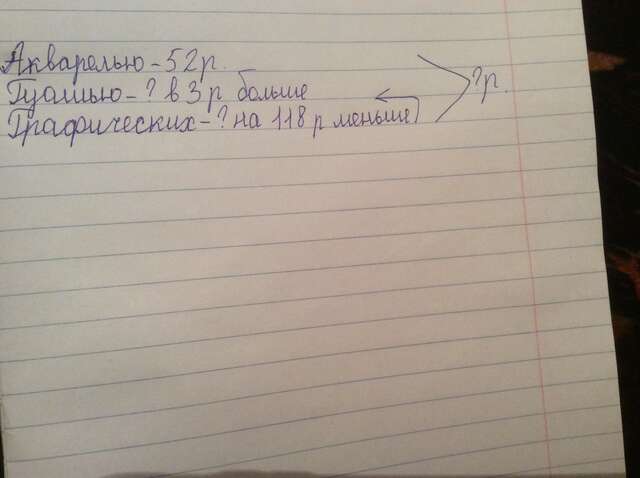 Акварелью - 52 р.
Гуашью - ? в 3 р больше
Графических - ? на 118 р меньше
? р.